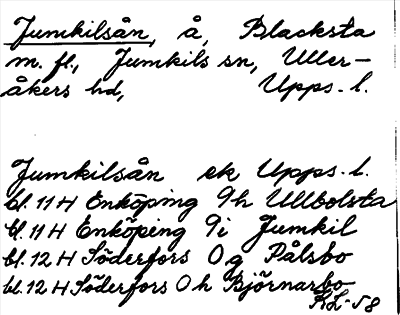 Jumkilsån, å, Blacksta
m. fl., Jumkils sn, Uller-
åkers hd, Upps. l.
Jumkilsån ek Upps. l.
bl. 11 H Enköping 9h Ullbolsta
bl. 11 H Enköping 9i Jumkil
bl. 12 H Söderfors 0g Pålsbo
bl. 12 H Söderfors 0h Björnarbo
RL-58